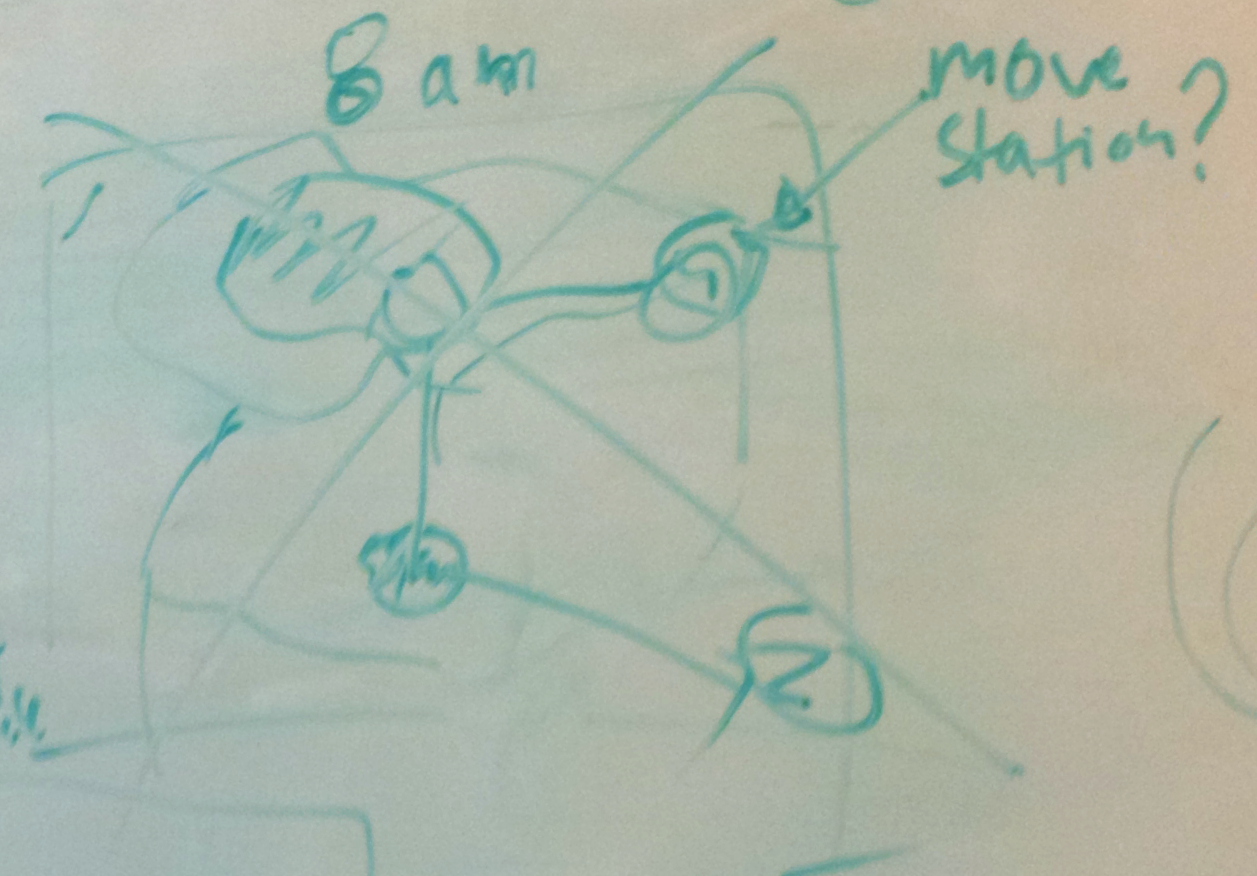 8 am
move
station?
1
2